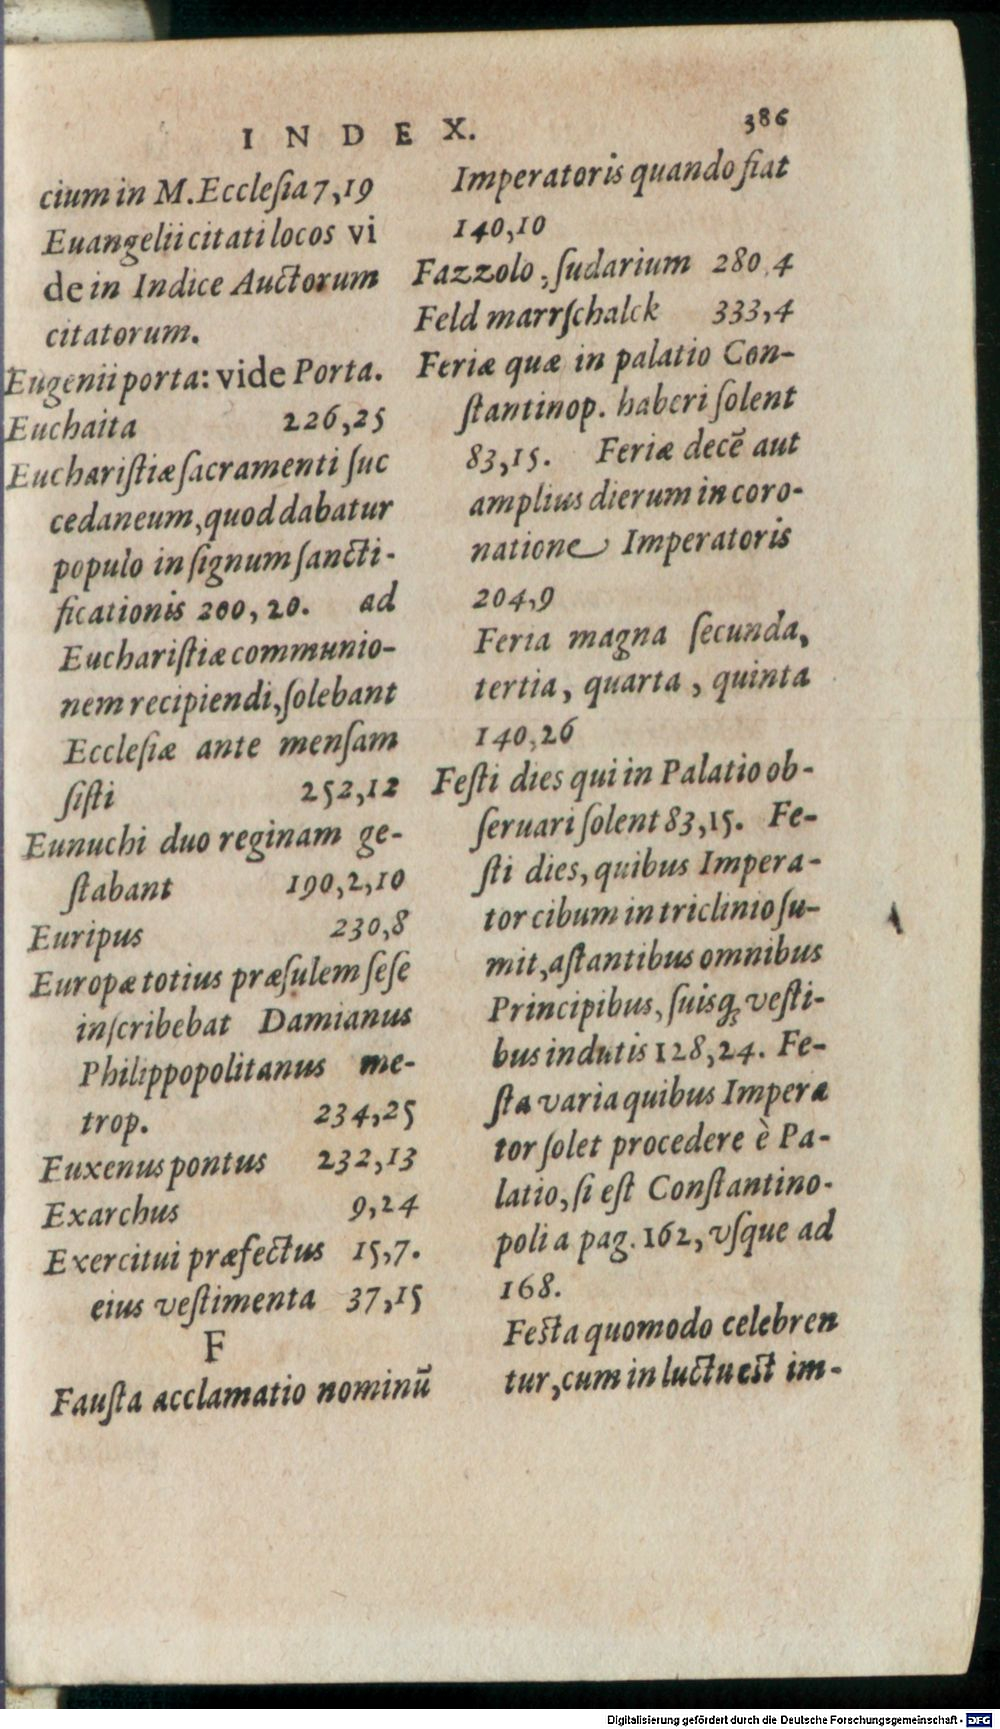 INDEX. 386
cium in M. Ecclesia 7,19
Euangelii citati locos vi
de in Indice Auctorum
citatorum.
Eugenii porta: vide Porta.
Euchaita 226,25
Eucharistiæ sacramenti suc
cedaneum, quod dabatur
populo in signum sancti-
ficationis 200, 20. ad
Eucharistiæ communio-
nem recipiendi, solebant
Ecclesiæ ante mensam
sisti 252,12
Eunuchi duo reginam ge-
stabant 190,2,10
Euripus 230,8
Europæ totius præsulem sese
inscribebat Damianus
Philippopolitanus me-
trop. 234,25
Euxenus pontus 232,13
Exarchus 9,24
Exercitui præfectus 15,7.
eius vestimenta 37,15
F
Fausta acclamatio nominū
Imperatoris quando fiat
140,10
Fazzolo, sudarium 280,4
Feld marrschalck 333,4
Feriæ quæ in palatio Con-
stantinop. haberi solent
83,15. Feriæ decē aut
amplius dierum in coro-
natione Imperatoris
204,9
Feria magna secunda,
tertia, quarta, quinta
140,26
Festi dies qui in Palatio ob-
seruari solent 83,15. Fe-
sti dies, quibus Impera-
tor cibum in triclinio su-
mit, astantibus omnibus
Principibus, suisq; vesti-
bus indutis 128,24. Fe-
sta varia quibus Impera
tor solet procedere è Pa-
latio, si est Constantino-
poli a pag. 162, vsque ad
168.
Festa quomodo celebren
tur, cum in luctu est im-
Digitalisierung gefördert durch die Deutsche Forschungsgemeinschaft - DFG